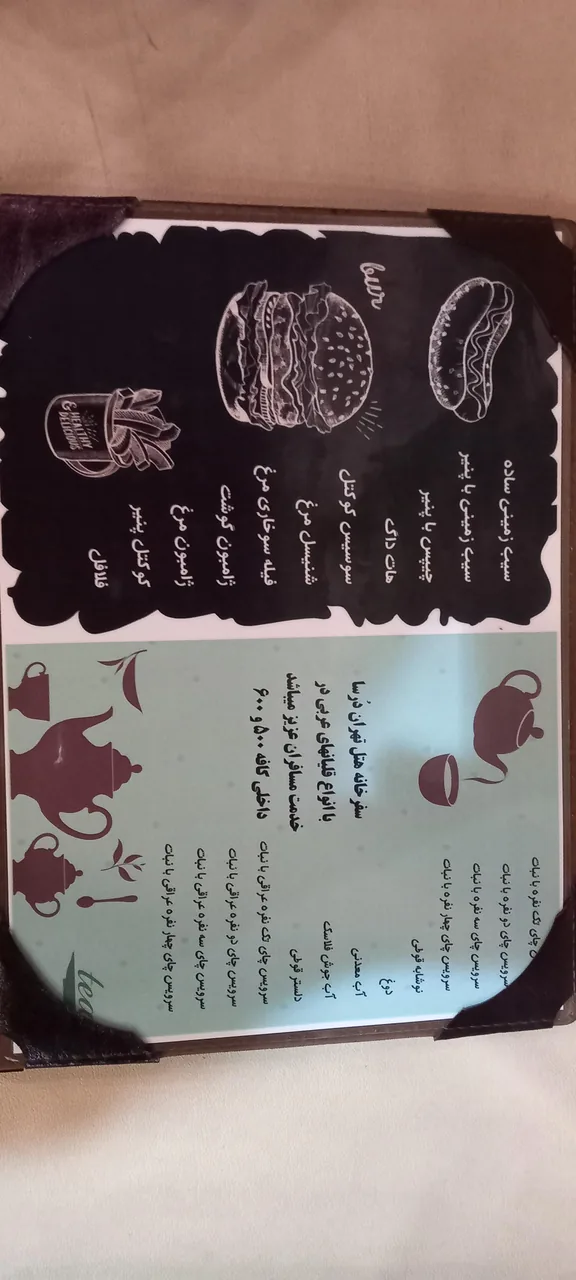 bur
سیب زمینی ساده
سیب زمینی با پنیر
چیپس با پنیر
هات داگ
سوسیس کوکتل
شنیسل مرغ
فیله سوخاری مرغ
ژامبون گوشت
ژامبون مرغ
کوکتل پنیر
فلافل
HEALTHY
& DELICIOUS
سفرخانه هتل تهران دُرسا
با انواع قلیانهای عربی در
خدمت مسافران عزیز میباشد
داخلی کافه ۵۰۰ و ۶۰۰
چای تک نفره با نبات
سرویس چای دو نفره با نبات
سرویس چای سه نفره با نبات
سرویس چای چهار نفره با نبات
نوشابه قوطی
دوغ
آب معدنی
آب جوش فلاسک
دلستر قوطی
سرویس چای تک نفره عراقی با نبات
سرویس چای دو نفره عراقی با نبات
سرویس چای سه نفره عراقی با نبات
سرویس چای چهار نفره عراقی با نبات
tea